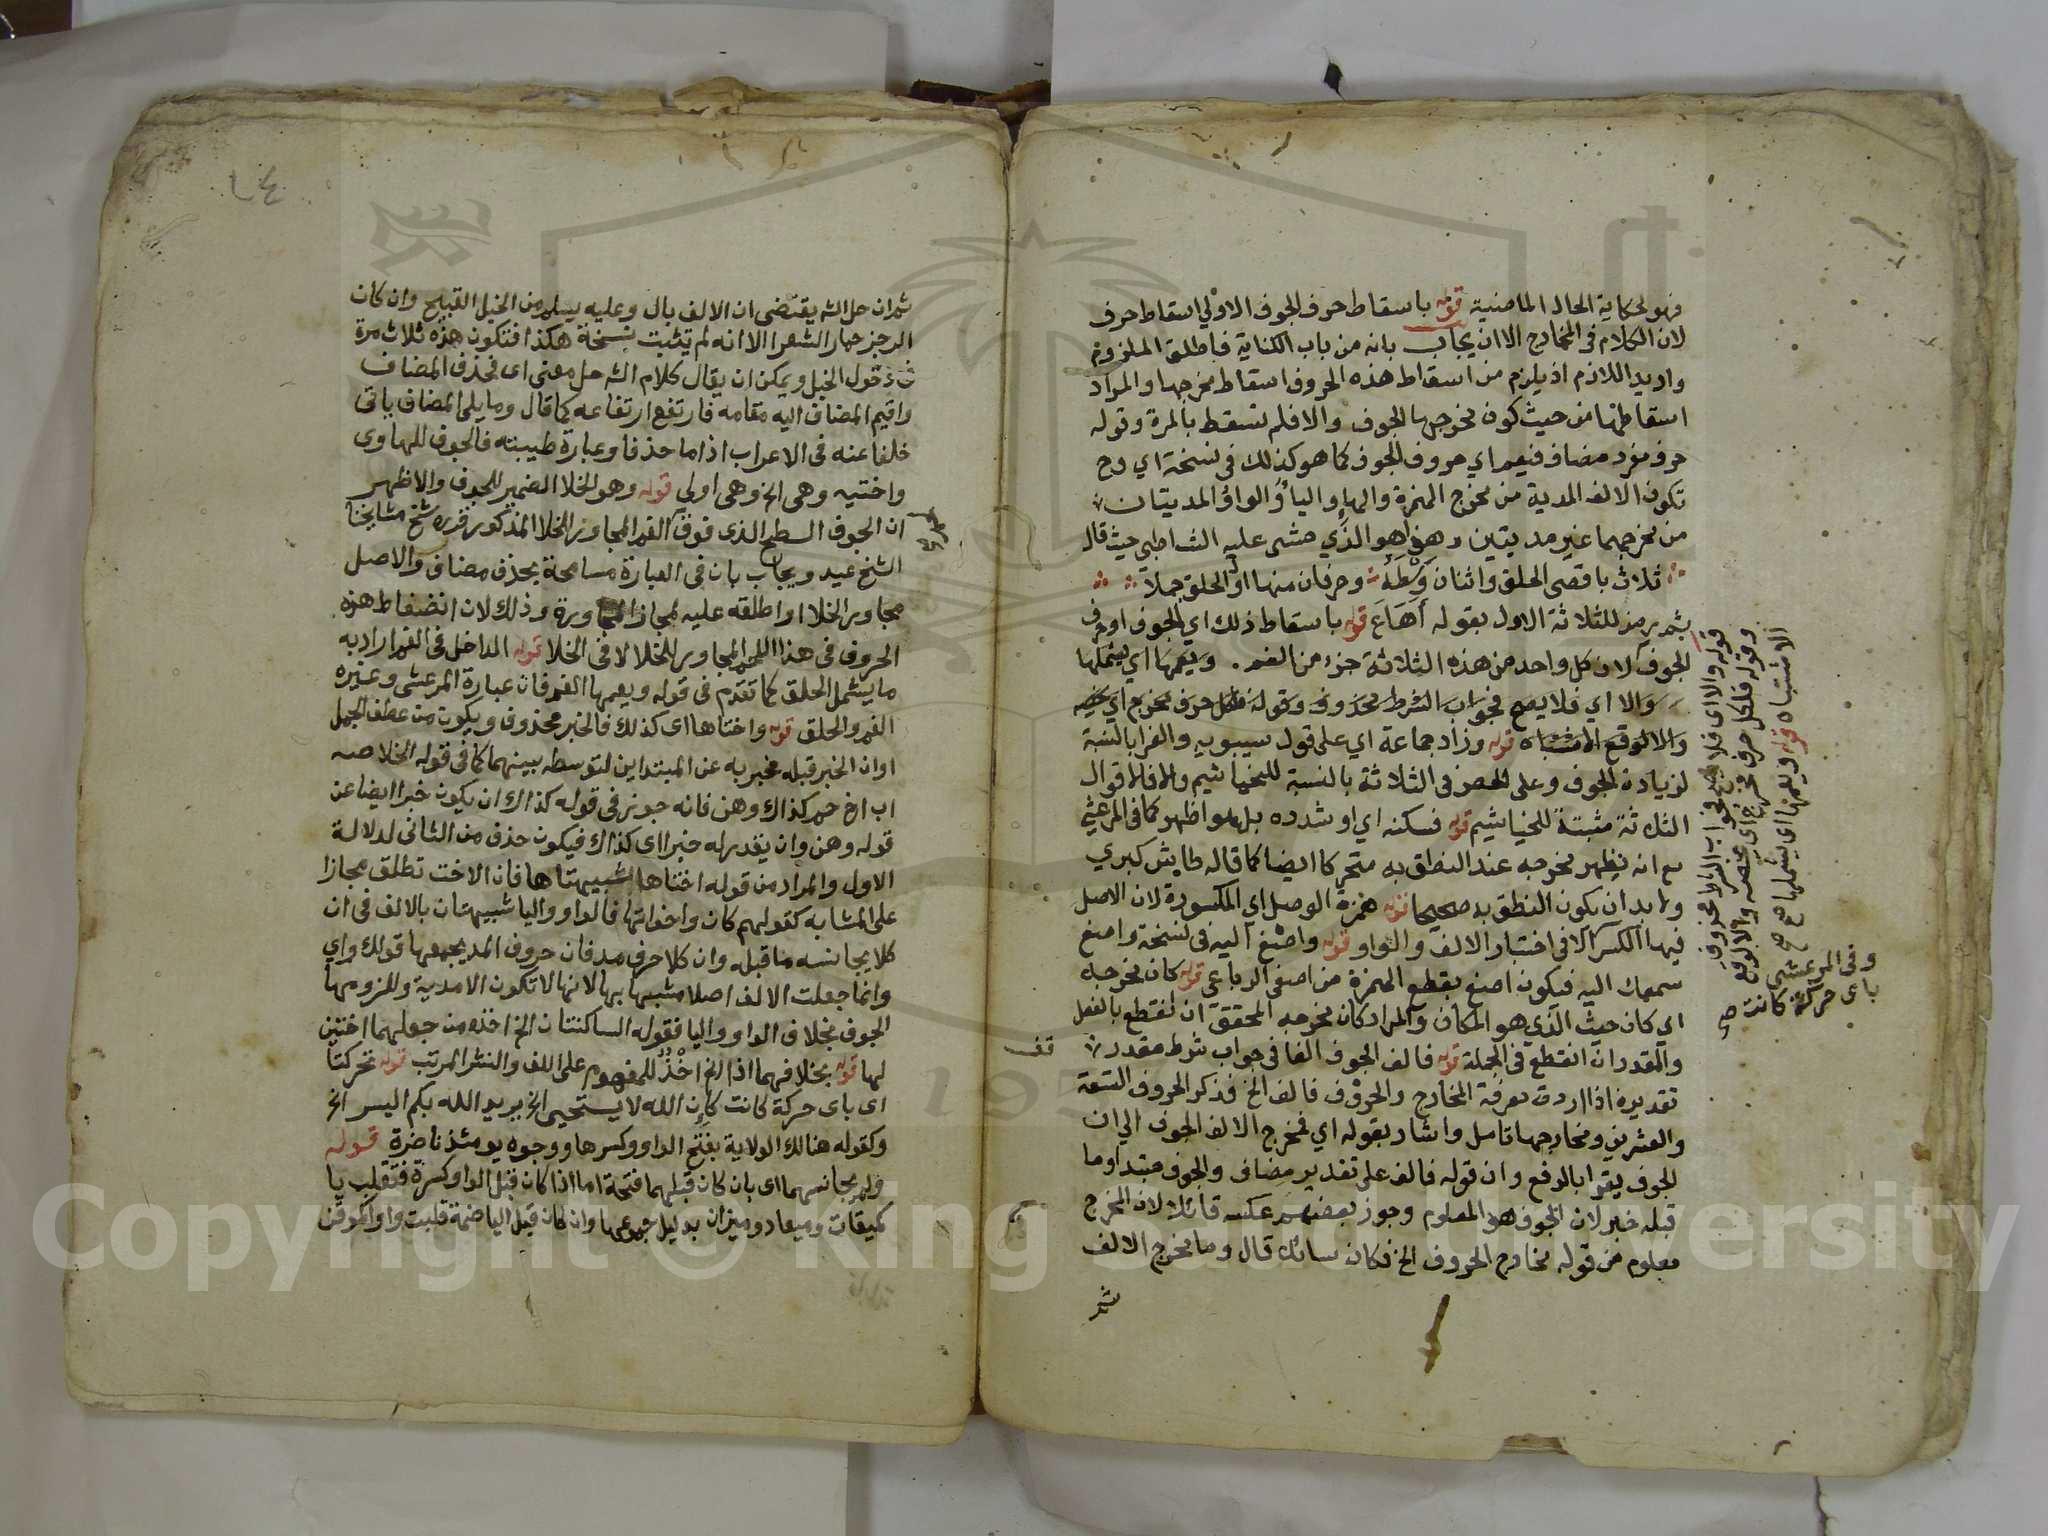 فهو لحكاية الحال الماضية قوله باسقاط حرف الجوف الاولي اسقاط حرف
لان الكلام في المخارج الا ان يجاب بانه من باب الكناية فاطلق الملزوم
واريد اللازم اذ يلزم من اسقاط هذه الحروف اسقاط مخرجها والمراد
اسقاطها من حيث كون مخرجها الجوف والا فلم تسقط بالمرة وقوله
حرف مفرد مضاف فيعم اي حروف الجوف كما هو كذلك في نسخة اي وح
تكون الالف المدية من مخرج الهمزة والهاء واليا والواو المديتان
من مخرجهما غير مديتين وهذا هو الذي مشى عليه الشاطبي حيث قال
ثلاث باقصى الحلق واثنان وسطه وحرفان منها اول الحلق جملا
ثم رمز للثلاثة الاول بقوله أهاع قوله باسقاط ذلك اي الجوف اوحرف
الجوف لان كل واحد من هذه الثلاثة جزء من الفم . ويعمها اي يشملها
والا اي فلا يصح فجواب الشرط محذوف وقوله فلكل حرف مخرج اي يخصه
والا لوقع الاشتباه قوله وزاد جماعة اي على قول سيبويه والفرا بالنسبة
لزيادة الجوف وعلى الحصر في الثلاثة بالنسبة للخياشيم والا فالاقوال
الثلاثة مثبتة للخياشيم قوله فسكنه اي او شدده بل هو اظهر كما في المرعشي
مع انه يظهر مخرجه عند النطق به متحركا ايضا كما قاله طاش كبري
ولا بد ان يكون النطق به صحيحا قوله همزة الوصل اي المكسورة لان الاصل
فيها الكسر الا في اختبار الالف والواو قوله واصغ اليه في نسخة واصغ
سمعك اليه فيكون اصغ بقطع الهمزة من اصغى الرباعي قوله كان مخرجه
اي كان حيث الذي هو المكان والمراد كان مخرجه المحقق ان انقطع بالفعل
والمقدر ان انقطع في الجملة قوله فالف الجوف الفا في جواب شرط مقدر
تقديره اذا اردت معرفة المخارج والحروف فالف الخ فذكر الحروف التسعة
والعشرين ومخارجها تامل واشار بقوله اي فمخرج الالف الجوف الى ان
الجوف يقرا بالرفع وان قوله فالف على تقدير مضاف والجوف مبتدا وما
قبله خبر لان الجوف هو المعلوم وجوز بعضهم عكسه قائلا لان المخرج
معلوم من قوله مخارج الحروف الخ فكان سائلا قال وما مخرج الالف
ثم
قوله والا اي فلا يصح فجواب الشرط محذوف
وقوله فلكل حرف مخرج اي يخصه والا لوقع
الاشتباه قوله ويعمها اي يشملها صح صح
وفي المرعشي
باي حركة كانت صح
قف
ثم ان حل الشه يقتضي ان الالف بال وعليه يسلم من الخبل القبيح وان كان
الرجز حمار الشعرا الا انه لم يثبت نسخة هكذا فتكون هذه ثلاث مرة
دخول الخبل ويمكن ان يقال كلام الشه حل معنى اي فحذف المضاف
واقيم المضاف اليه مقامه فارتفع ارتفاعه كما قال وما يلي المضاف ياتي
خلفا عنه في الاعراب اذا ما حذفا وعبارة طيبته فالجوف للهاوي
واختيه وهي الخ وهي اولى قوله وهو الخلا الضمير للجوف والاظهر
ان الجوف السطح الذي فوق الفم المجاور للخلا المذكور قرره شيخ مشايخنا
الشيخ عيد ويجاب بان في العبارة مسامحة بحذف مضاف والاصل
مجاور الخلا او اطلقه عليه لمجاز المجاورة وذلك لان انضغاط هذه
الحروف في هذا اللحم المجاور للخلا لا في الخلا قوله الداخل في الفم اراد به
ما يشمل الحلق كما تقدم في قوله ويعمها الفم فان عبارة المرعشي وغيره
الفم والحلق قوله واختاها اي كذلك فالخبر محذوف ويكون من عطف الجمل
او ان الخبر قبله مخبر به عن المبتداين لتوسطه بينهما كما في قوله الخلاصه
اب اخ حم كذاك وهن فانه جوز في قوله كذاك ان يكون خبرا ايضا عن
قوله وهن وان يقدر له خبرا اي كذاك فيكون حذف من الثاني لدلالة
الاول والمراد من قوله اختاها شبيهتاها فان الاخت تطلق مجازا
على المشابه كقولهم كان واخواتها فالواو واليا شبيهتان بالالف في ان
كلا يجانسه ما قبله وان كلا حرف مد فان حروف المد يجمعها قولك واي
وانما جعلت الالف اصلا مشبها بها لانها لا تكون الا مدية وللزومها
الجوف بخلاف الواو واليا فقوله الساكنتان الخ اخذه من جعلهما اختين
لها قوله بخلافهما اذا الخ اخذ للمفهوم على اللف والنشر المرتب قوله تحركتا
اي باي حركة كانت كان الله لا يستحيي الخ يريد الله بكم اليسر الخ
وكقوله هنالك الولاية بفتح الواو وكسرها ووجوه يومئذ ناضرة قوله
ولم يجانسهما اي بان كان قبلهما فتحة اما اذا كان قبل الواو كسرة فتقلب يا
كميقات وميعاد وميزان بدليل جموعها وان كان قبل اليا ضمة قلبت واوا كموقن